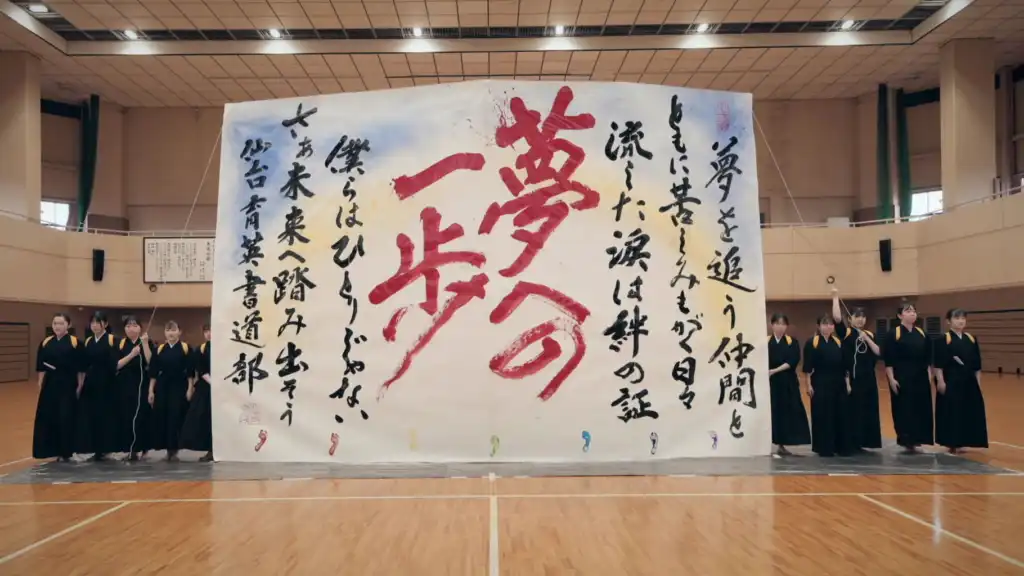 夢を追う仲間と
ともに苦しみもがく日々
流した涙は絆の証
夢への
一歩
僕らはひとりじゃない
さぁ未来へ踏み出そう
仙台育英書道部